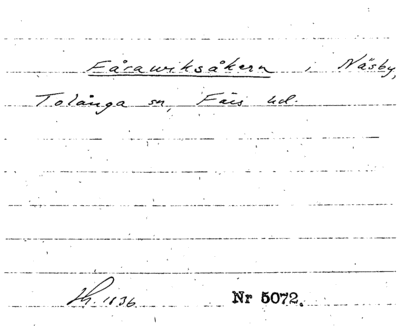 Fåraviksåkern i Näsby,
Tolånga sn, Färs hd.
Nr 5072.